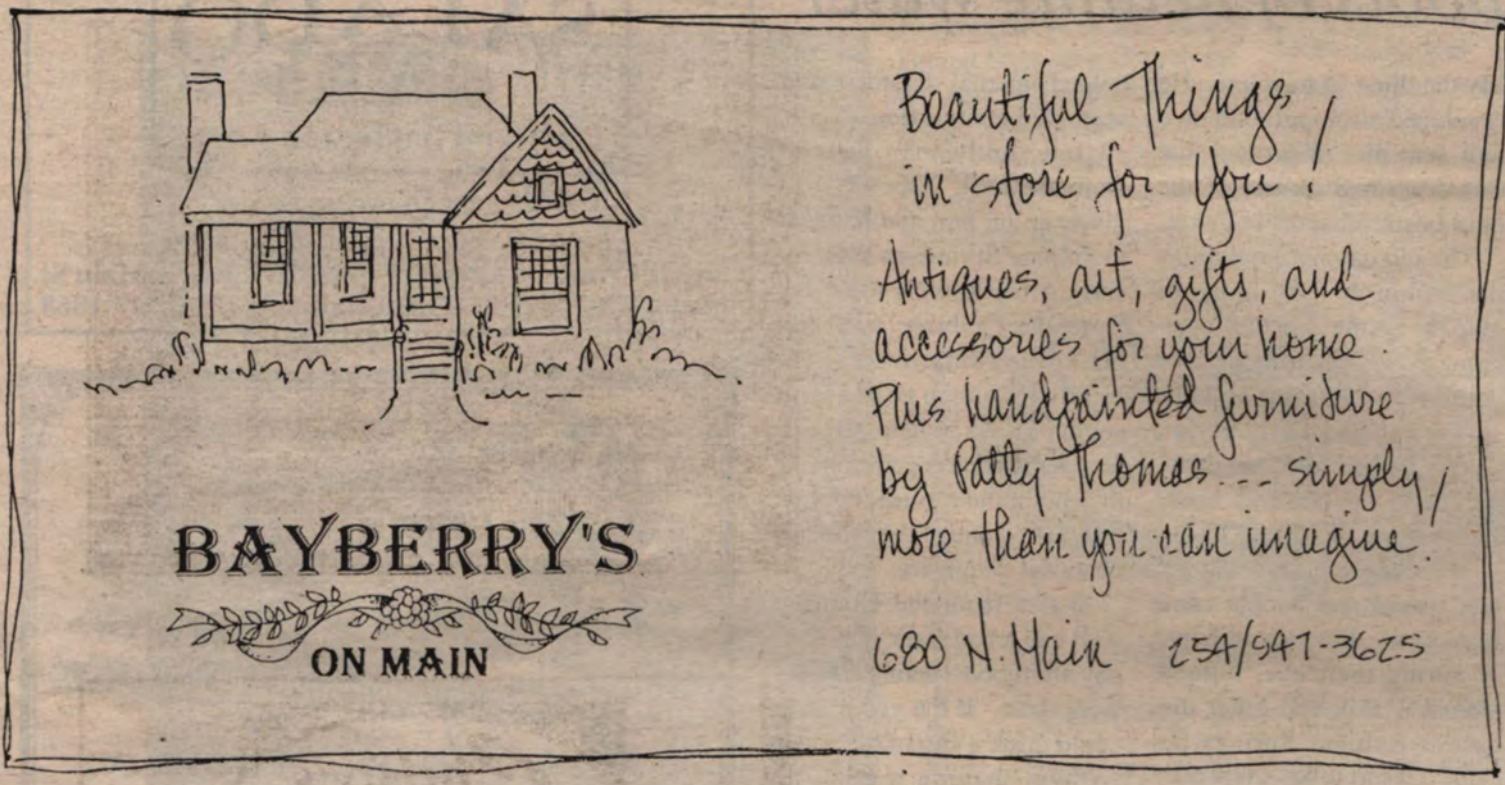 BAYBERRY'S
ON MAIN
Beautiful Things
in store for you!
Antiques, art, gifts, and
accessories for your home.
Plus handpainted furniture
by Patty Thomas... simply,
more than you can imagine!
680 N. Main 254/947-3625